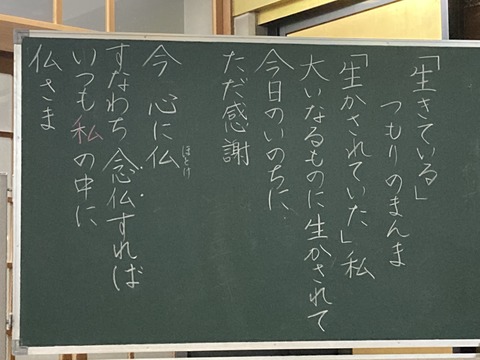 「生きている」
つもりのまんま
「生かされていた」私
大いなるものに生かされて
今日のいのちに
ただ感謝
今 心に仏
ほとけ
すなわち 念仏すれば
いつも私の中に
仏さま